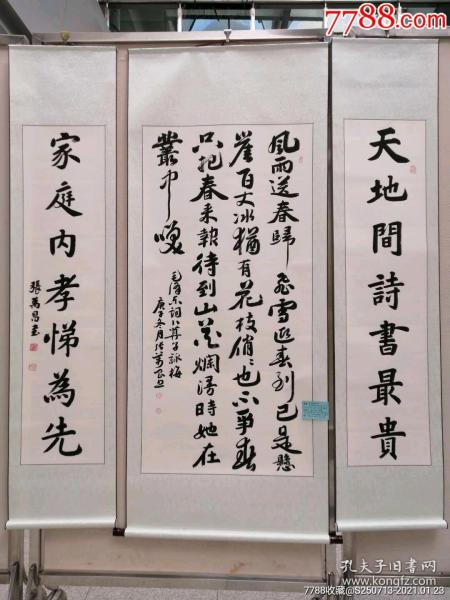 7788.com
天地間詩書最貴
風雨送春歸飛雪迎春到已是懸
崖百丈冰猶有花枝俏〻也不爭春
只把春来報待到山花爛漫時她在
叢中咲
毛澤东詞卜算子詠梅
庚子冬月張萬昌
家庭内孝悌為先
張萬昌書
孔夫子旧书网
www.kongfz.com
7788收藏@S250713-2021.01.23